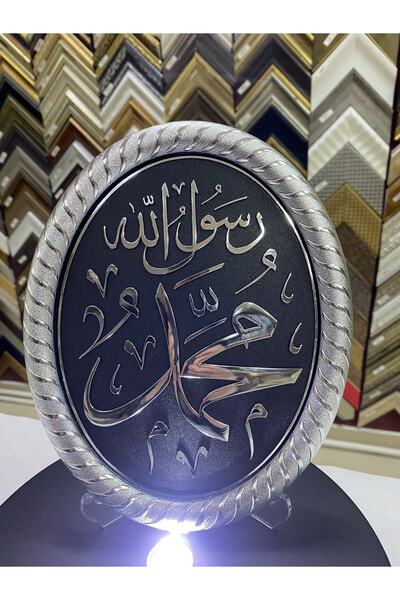 رَسُولُ اللّٰه
مُحَمَّد